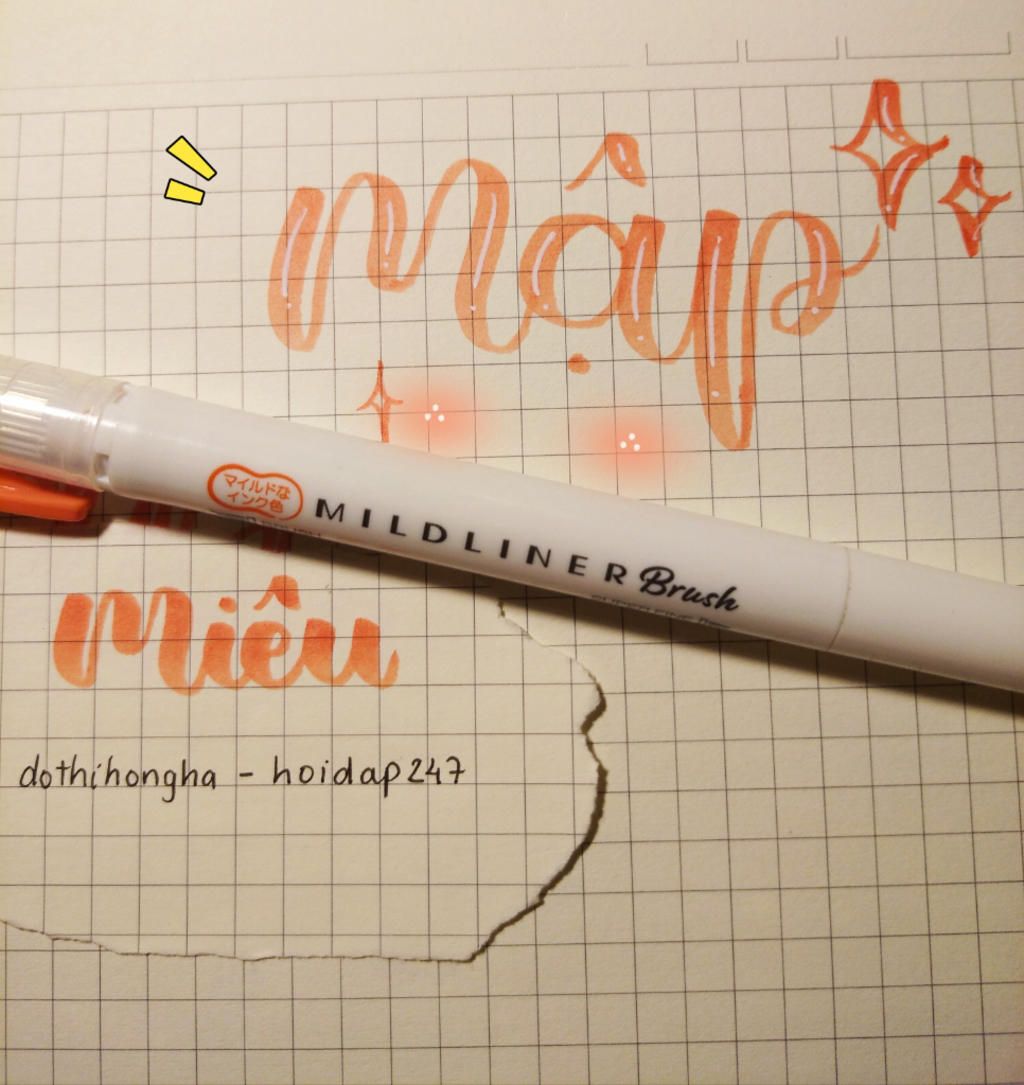 Mập
マイルドな
インク色
MILDLINER Brush
Miêu
dothihongha - hoidap247